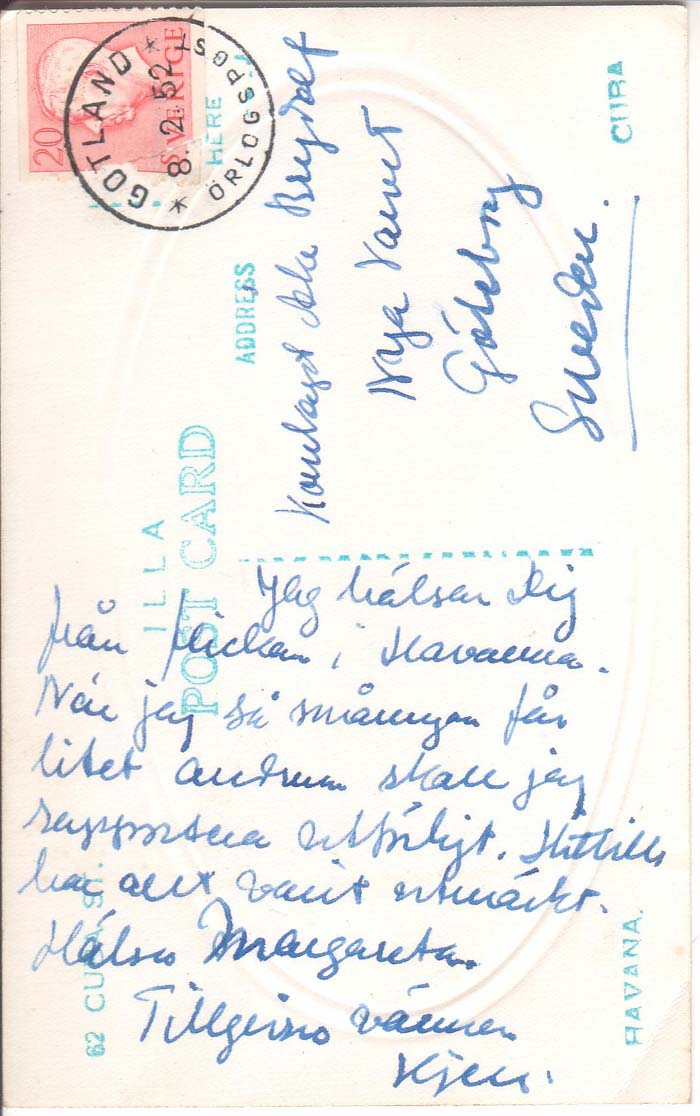 20
SVERIGE
GOTLAND
8. 2. 52
ÖRLOGSPOST
HERE
ILLA
POST CARD
ADDRESS
62 CU ST.
HAVANA.
CUBA
Nya Varvet
Göteborg
Sweden.
Jag hälsar Dig
från flickan i Havanna.
När jag så småningom får
litet andrum skall jag
rapportera utförligt. Hittills
har allt varit utmärkt.
Hälsa Margareta.
Tillgivne vännen